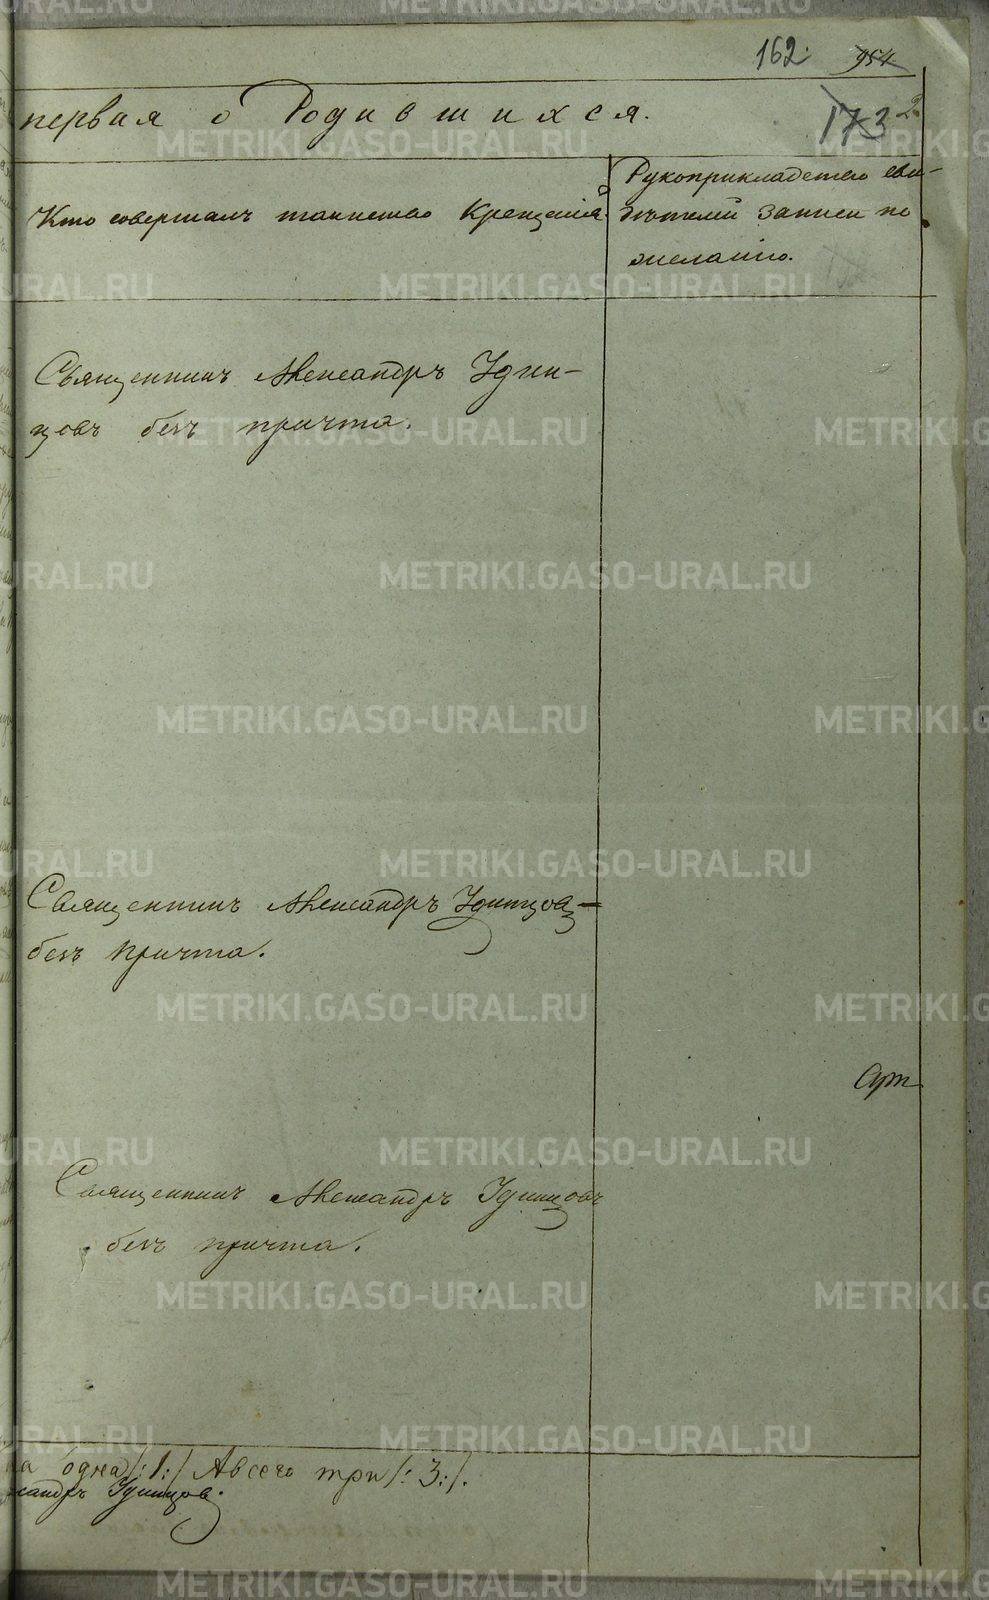 162. 954
173 2
первая о Родившихся.
Кто совершалъ таинство Крещенія.
Рукоприкладство сви-
дѣтелей записи по
желанію.
Священникъ Александръ Удин-
цовъ безъ причта.
Священникъ Александръ Удинцовъ
безъ причта.
Священникъ Александръ Удинцовъ
безъ причта.
на одна /:1:/ А всего три /:3:/.
сандръ Удинцов.
METRIKI.GASO-URAL.RU